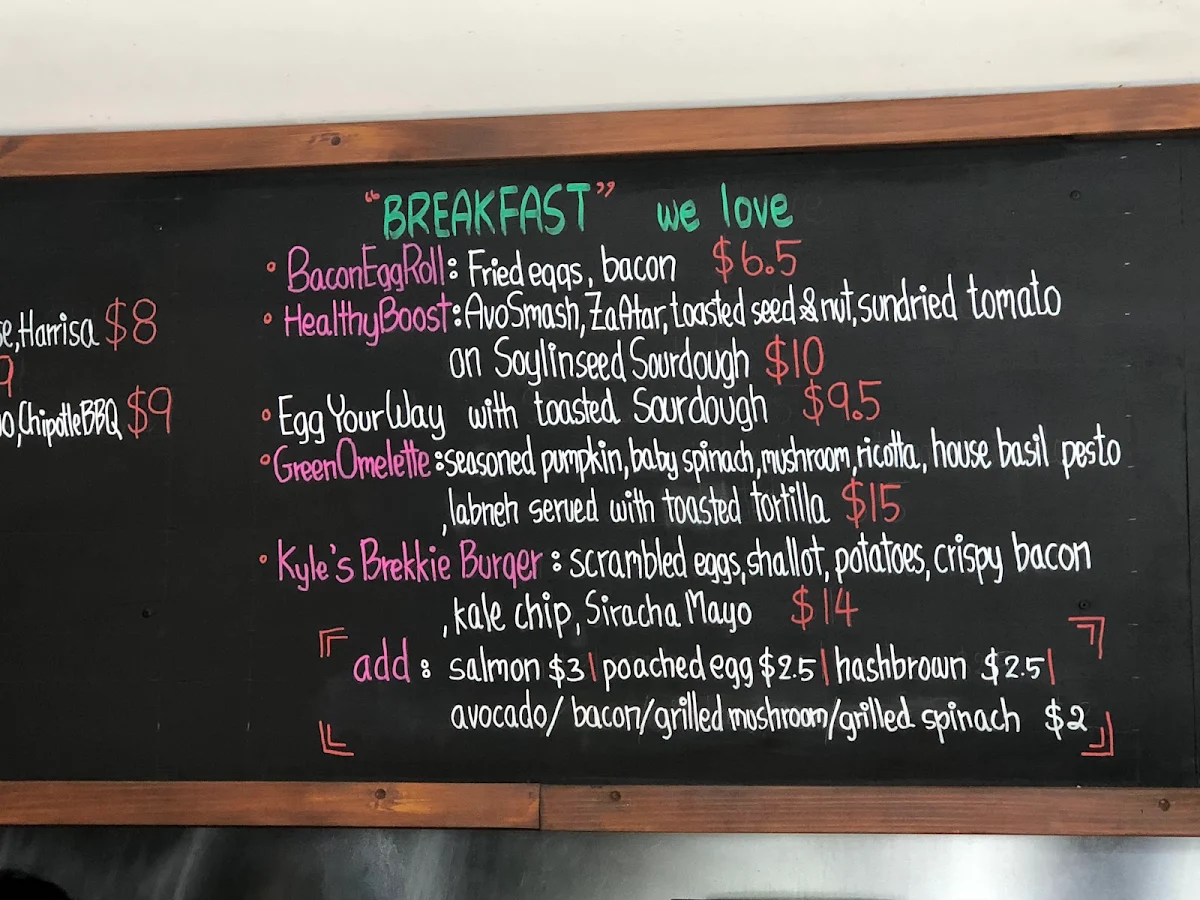 "BREAKFAST" we love
• BaconEggRoll: Fried eggs, bacon $6.5
• HealthyBoost: AvoSmash, ZaAtar, toasted seed & nut, sundried tomato
on Soylinseed Sourdough $10
• Egg Your Way with toasted Sourdough $9.5
• GreenOmelette: seasoned pumpkin, baby spinach, mushroom, ricotta, house basil pesto
, labneh served with toasted tortilla $15
• Kyle's Brekkie Burger: scrambled eggs, shallot, potatoes, crispy bacon
, kale chip, Siracha Mayo $14
add: salmon $3 | poached egg $2.5 | hashbrown $2.5 |
avocado/ bacon/grilled moshroom/grilled spinach $2
, Harrisa $8
9
, ChipotleBBQ $9